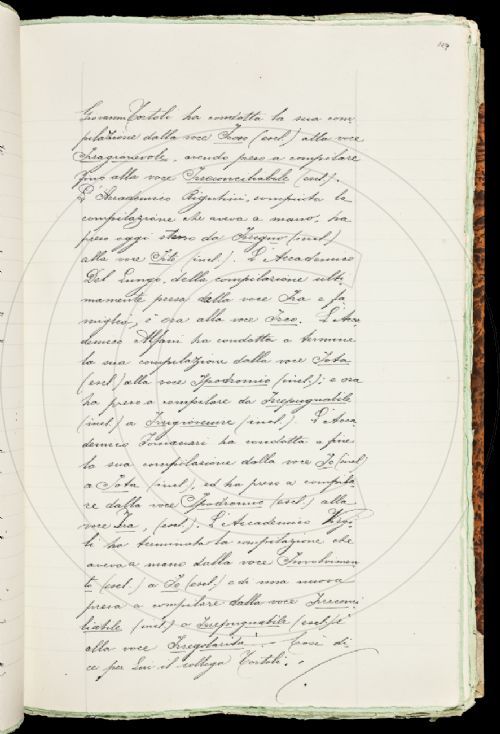 109
Giovanni Tortoli ha condotta la sua com
pilazione dalla voce (escl.) alla voce
Irragionevole, avendo preso a compilare
fino alla voce Irreconciliabile (escl.).
L'Accademico Rigutini, compiuta la
compilazione che aveva a mano, ha
preso oggi stesso da (incl.)
alla voce (incl.). L'Accademico
Del Lungo, della compilazione ulti-
mamente presa dalla voce Ira e fa
miglia, è ora alla voce Ireo. L'Acca
demico Alfani ha condotta a termine
la sua compilazione dalla voce Iota
(escl.) alla voce Ipodromio (incl.); e ora
ha preso a compilare da Irrepugnabile
(incl.) a Irrugiovenire (incl.). L'Acca
demico ha condotta a fine
la sua compilazione dalla voce Io (incl.)
a Iota (incl.), ed ha preso a compila-
re dalla voce Ipodromio (escl.) alla
voce Ira, (escl.). L'Accademico
ha terminata la compilazione che
aveva a mano dalla voce Involvimen-
to (escl.) a Io (escl.) e di una nuova
presa a compilare dalla voce Irreconci
liabile (incl.) a Irrepugnabile (escl.) è
alla voce Irregolarità. - Così di-
ce per Lui il collega Tortoli. -